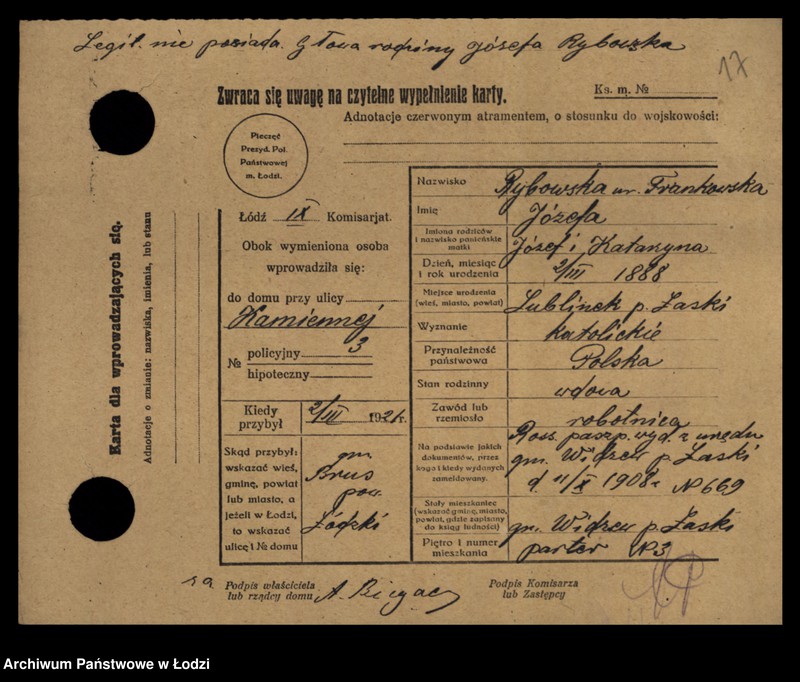 Legit. nie posiada. Głowa rodziny Józefa Ryboszka
17
Zwraca się uwagę na czytelne wypełnienie karty.
Ks. m. №
Adnotacje czerwonym atramentem, o stosunku do wojskowości:
Pieczęć
Prezyd. Pol.
Państwowej
m. Łodzi.
Karta dla wprowadzających się.
Adnotacje o zmianie: nazwiska, imienia, lub stanu
Łódź IX Komisarjat.
Obok wymieniona osoba
wprowadziła się:
do domu przy ulicy
Kamiennej
№ policyjny 3
hipoteczny
Kiedy przybył 2/III 1921r.
Skąd przybył:
wskazać wieś,
gminę, powiat
lub miasto, a
jeżeli w Łodzi,
to wskazać
ulicę i № domu
gm.
Brus
pow.
Łódzki
Nazwisko Rybowska ur. Frankowska
Imię Józefa
Imiona rodziców
i nazwisko panieńskie
matki
Józef i Katarzyna
Dzień, miesiąc
i rok urodzenia
2/III 1888
Miejsce urodzenia
(wieś, miasto, powiat)
Lublinek p. Łaski
Wyznanie katolickie
Przynależność
państwowa
Polska
Stan rodzinny wdowa
Zawód lub
rzemiosło
robotnica
Na podstawie jakich
dokumentów, przez
kogo i kiedy wydanych
zameldowany.
Ross. paszp. wyd. z urzędu
gm. Widzew p. Łaski
d. 11/X 1908r № 669
Stały mieszkaniec
(wskazać gminę, miasto,
powiat, gdzie zapisany
do ksiąg ludności)
gm. Widzew p. Łaski
Piętro i numer
mieszkania
parter № 3
Podpis właściciela
lub rządcy domu
Podpis Komisarza
lub Zastępcy
Archiwum Państwowe w Łodzi